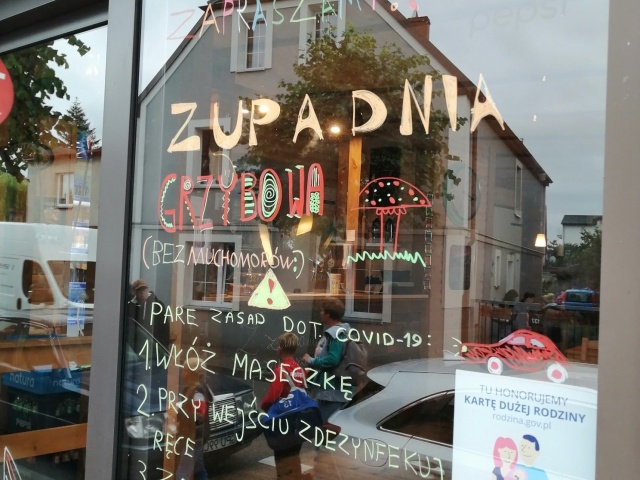 ZAPRASZAMY
pepsi
ZUPA DNIA
GRZYBOWA
(BEZ MUCHOMORÓW:)
!
PARE ZASAD DOT. COVID-19:
1. WŁÓŻ MASECZKĘ
2. PRZY WEJŚCIU ZDEZYNFEKUJ
RĘCE
3.
TU HONORUJEMY
KARTĘ DUŻEJ RODZINY
rodzina.gov.pl
natura